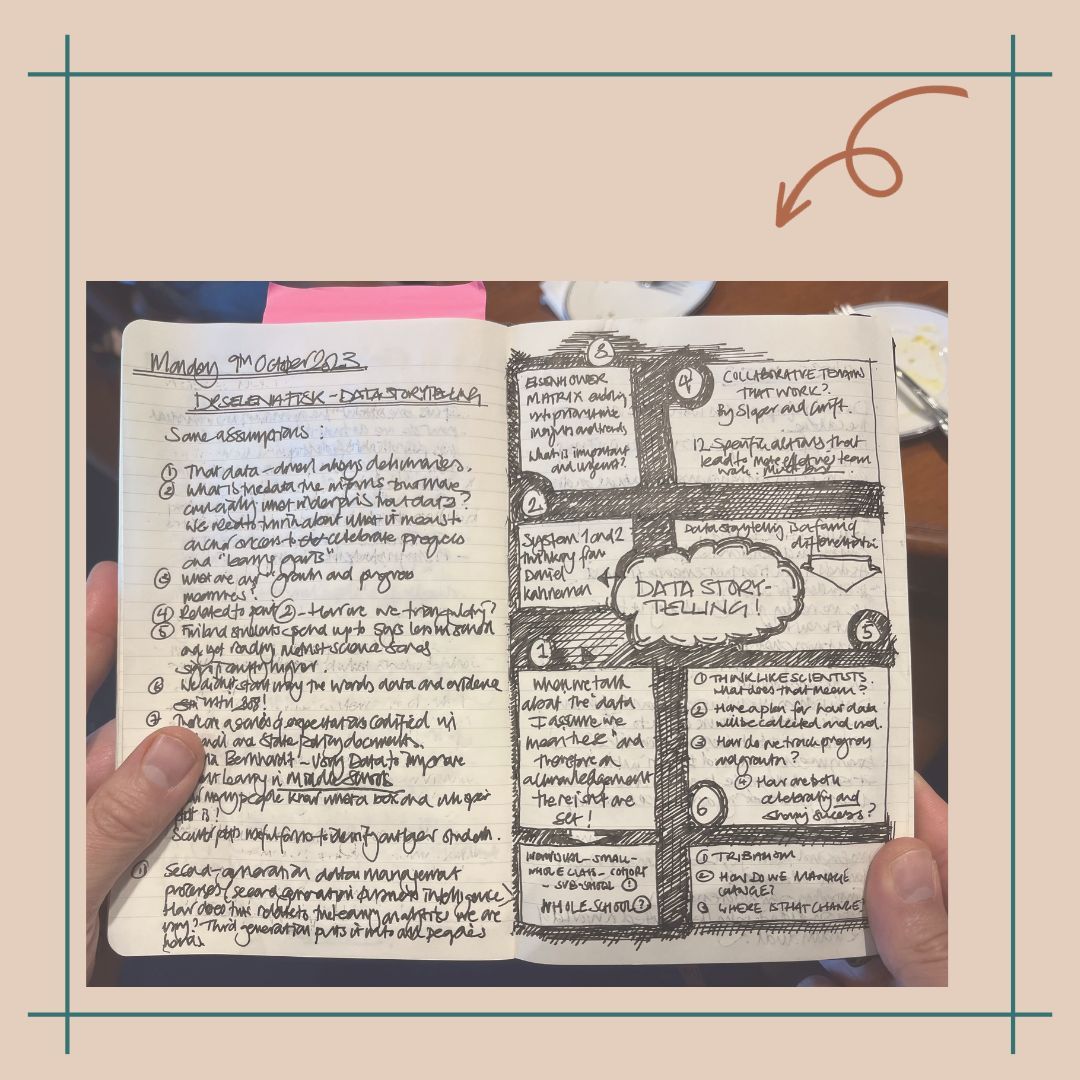 Monday 9TH October 2023
DR SELENA FISK - DATA STORYTELLING
Some assumptions :
① That data-driven always dehumanises.
② What is the data the informs but more
crucially what underpins that data?
We need to think about what it means to
anchor success to celebrate progress
and "learning gains"
③ What are our growth and progress
measures?
④ Related to point ② - How are we triangulating?
⑤ Finland students spend up to less in school
and yet reading and science scores
significantly higher.
⑥ We didn't start using the words data and evidence
until
⑦ There are a series of expectations codified in
and State policy documents.
Bernhardt - Using Data to Improve
Learning in Middle Schools
many people know what a box and whisker
plot is!
Scatter plots useful forms to identify outlier students.
Second-generation data management
processes (second generation business intelligence)
How does this relate to the learning analytics we are
using? Third generation puts it into all people's
hands
3
EISENHOWER
MATRIX enabling
us to prioritise
insights and trends
What is important
and urgent?
4
COLLABORATIVE TEAMS
THAT WORK?
By Sloper and Grift.
12 Specific actions that
lead to more effective team
work.
2
System 1 and 2
thinking from
Daniel
Kahneman
Data storytelling is a form of
differentiation
DATA STORY-
TELLING!
5
1
When we talk
about the "data"
I assume we
mean "these" and
therefore an
acknowledgement
there is not one
set!
① THINK LIKE SCIENTISTS.
What does that mean?
② Have a plan for how data
will be collected and used.
③ How do we track progress
and growth?
④ How are both
celebrating and
sharing success?
6
INDIVIDUAL - SMALL -
WHOLE CLASS - COHORT
- SUB-SCHOOL ①
WHOLE SCHOOL ②
① TRIBALISM
② HOW DO WE MANAGE
CHANGE?
③ WHERE IS THAT CHANGE